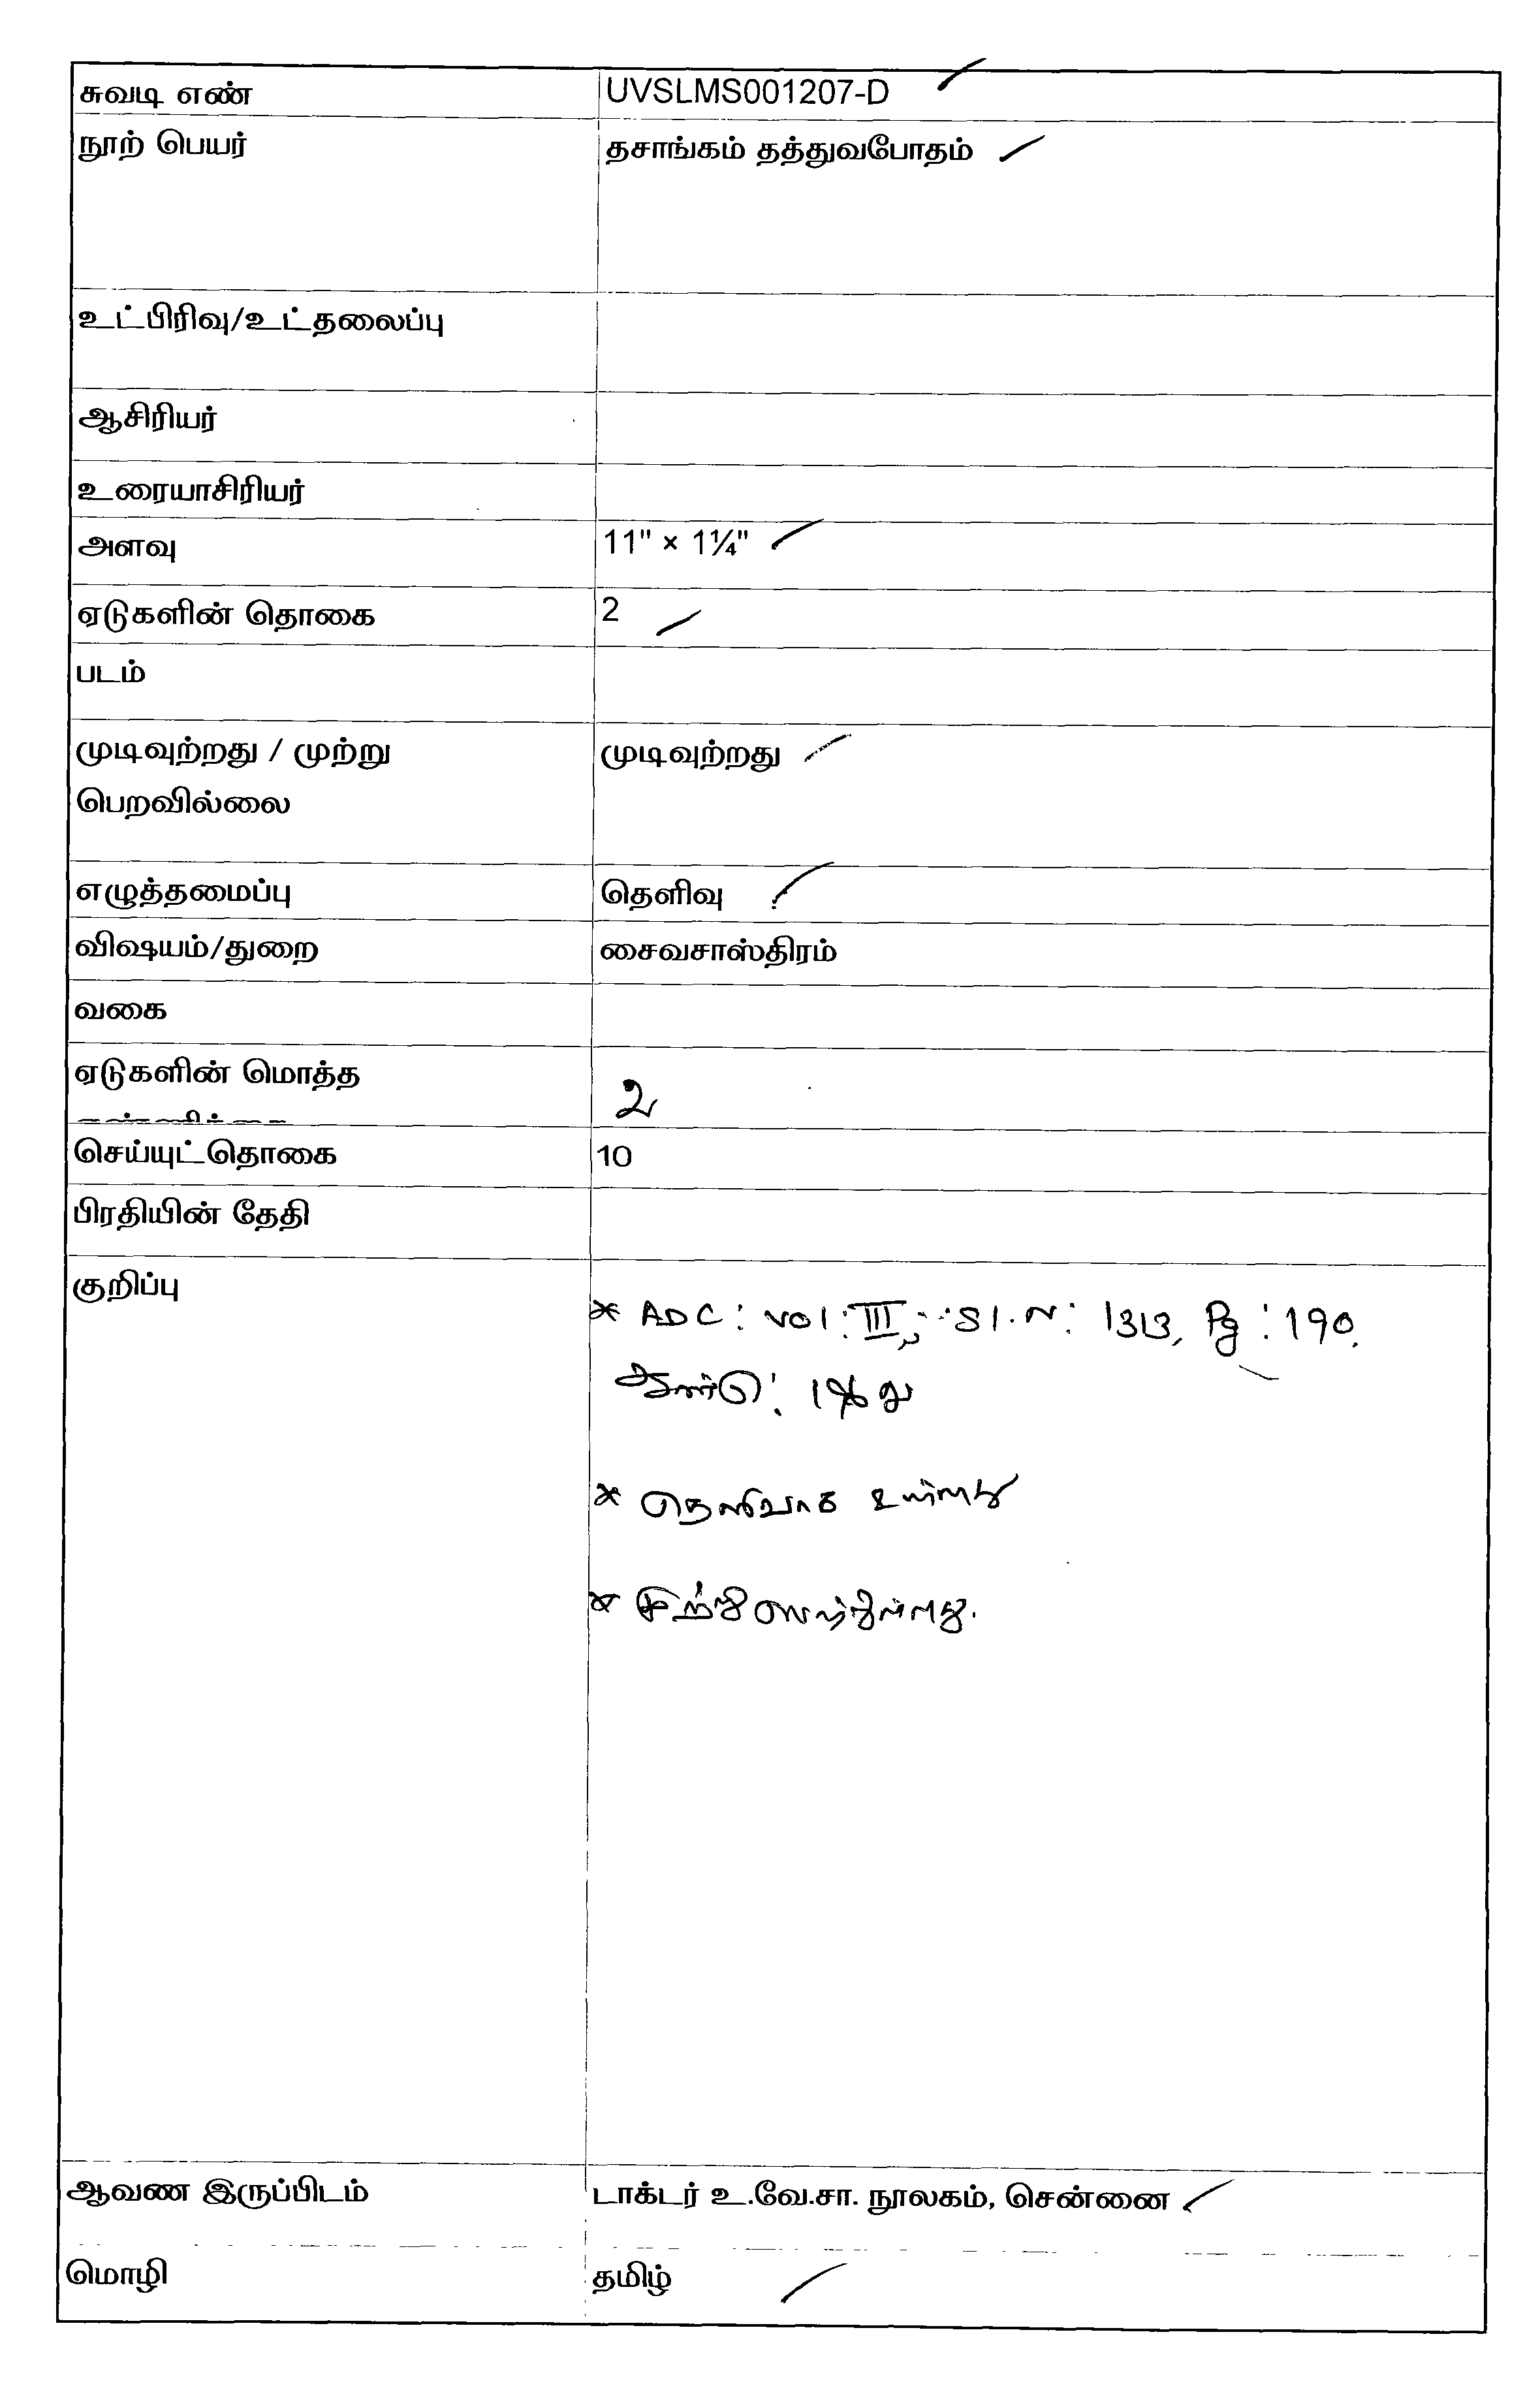 சுவடி எண் UVSLMS001207-D
நூற் பெயர் தசாங்கம் தத்துவபோதம்
உட்பிரிவு/உட்தலைப்பு
ஆசிரியர்
உரையாசிரியர்
அளவு 11" × 1¼"
ஏடுகளின் தொகை 2
படம்
முடிவுற்றது / முற்று முடிவுற்றது
பெறவில்லை
எழுத்தமைப்பு தெளிவு
விஷயம்/துறை சைவசாஸ்திரம்
வகை
ஏடுகளின் மொத்த 2
செய்யுட்தொகை 10
பிரதியின் தேதி
குறிப்பு
* ADC: Vol: III, Sl.N: 1313, Pg: 190.
ஆண்டு:
* தெளிவாக உள்ளது
*
ஆவண இருப்பிடம் டாக்டர் உ.வே.சா. நூலகம், சென்னை
மொழி தமிழ்